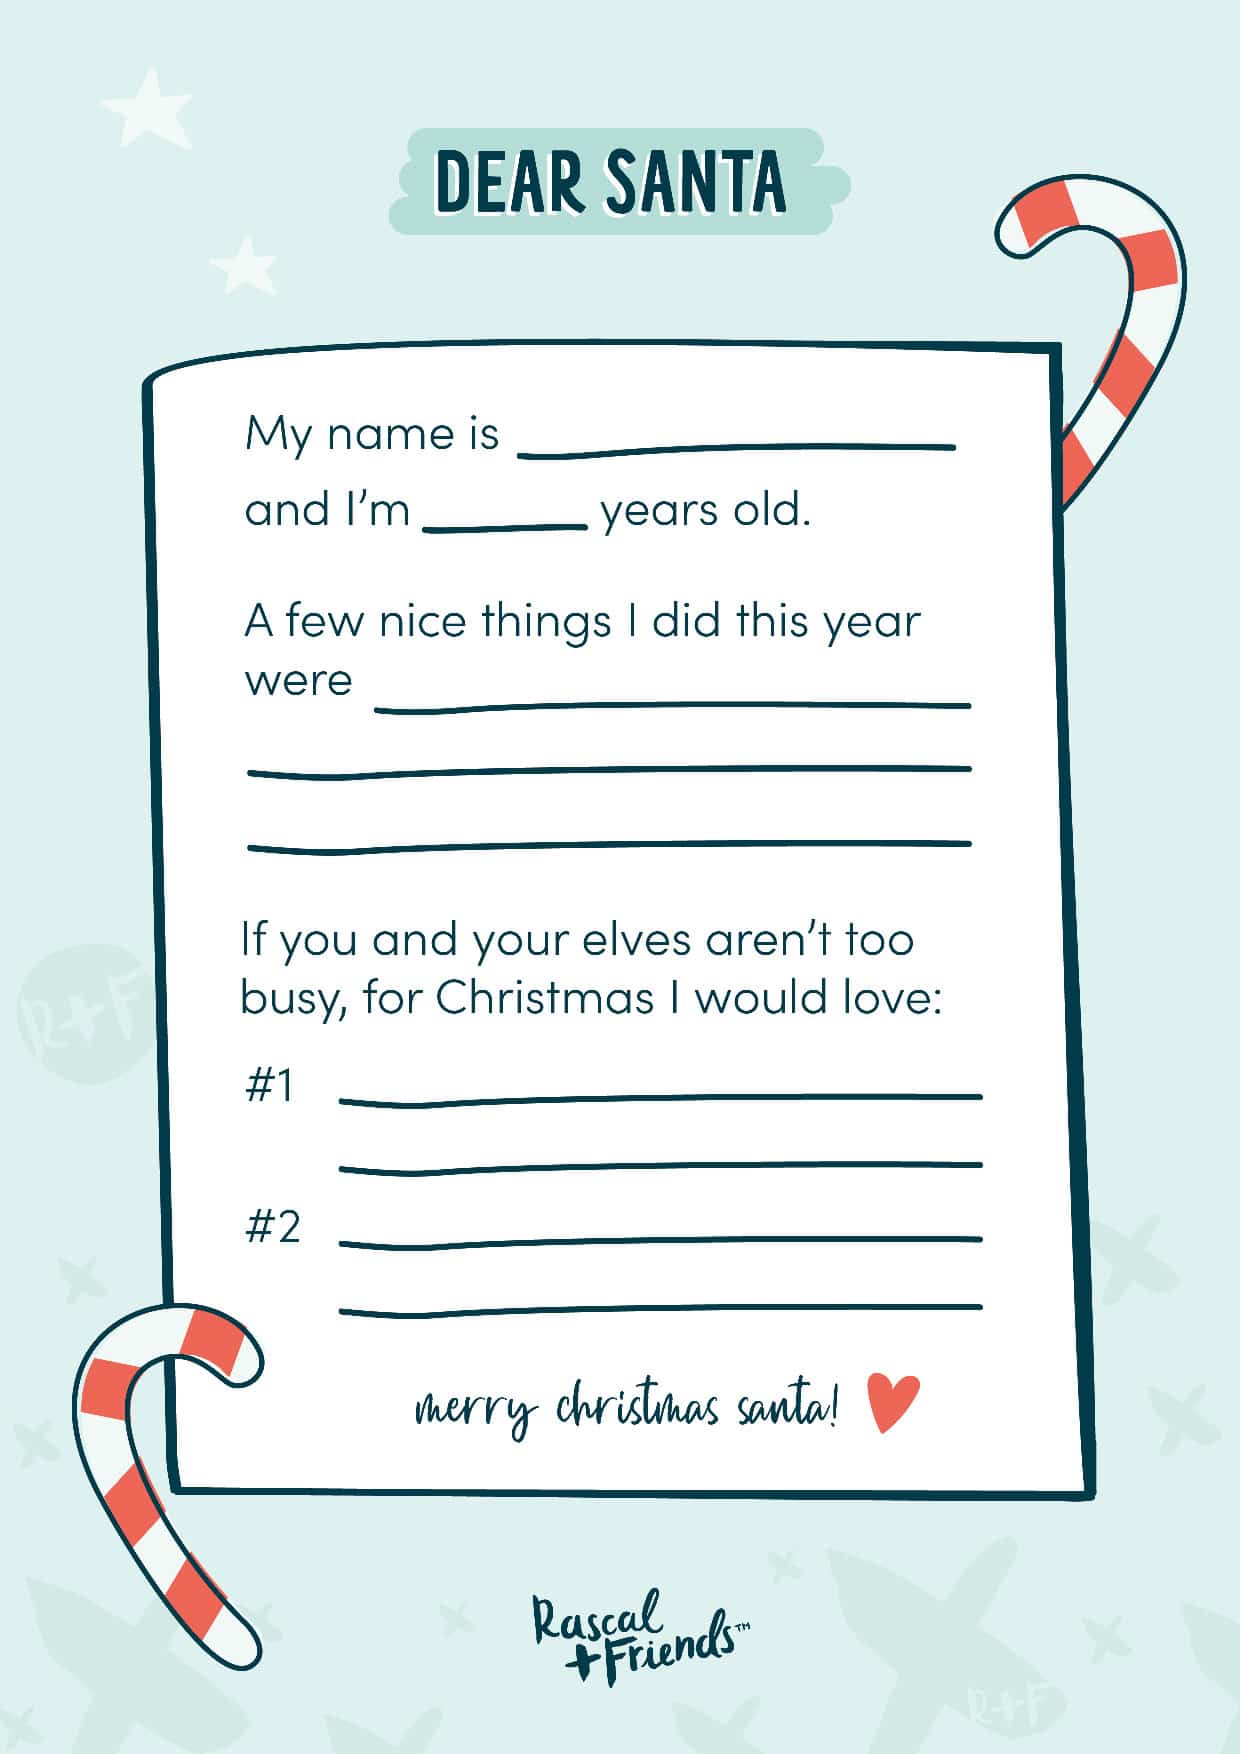 DEAR SANTA
My name is
and I'm years old.
A few nice things I did this year
were
If you and your elves aren't too
busy, for Christmas I would love:
R+F
#1
#2
merry christmas santa!
Rascal
+Friends™
R+F